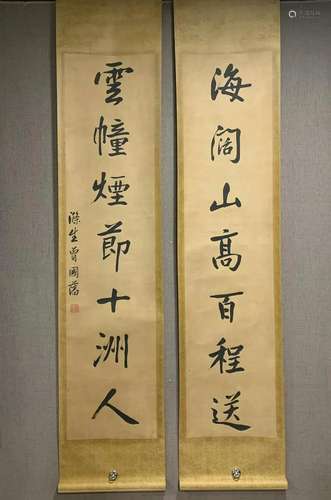 海阔山高百程送
雲幢煙節十洲人
滌生曾國藩